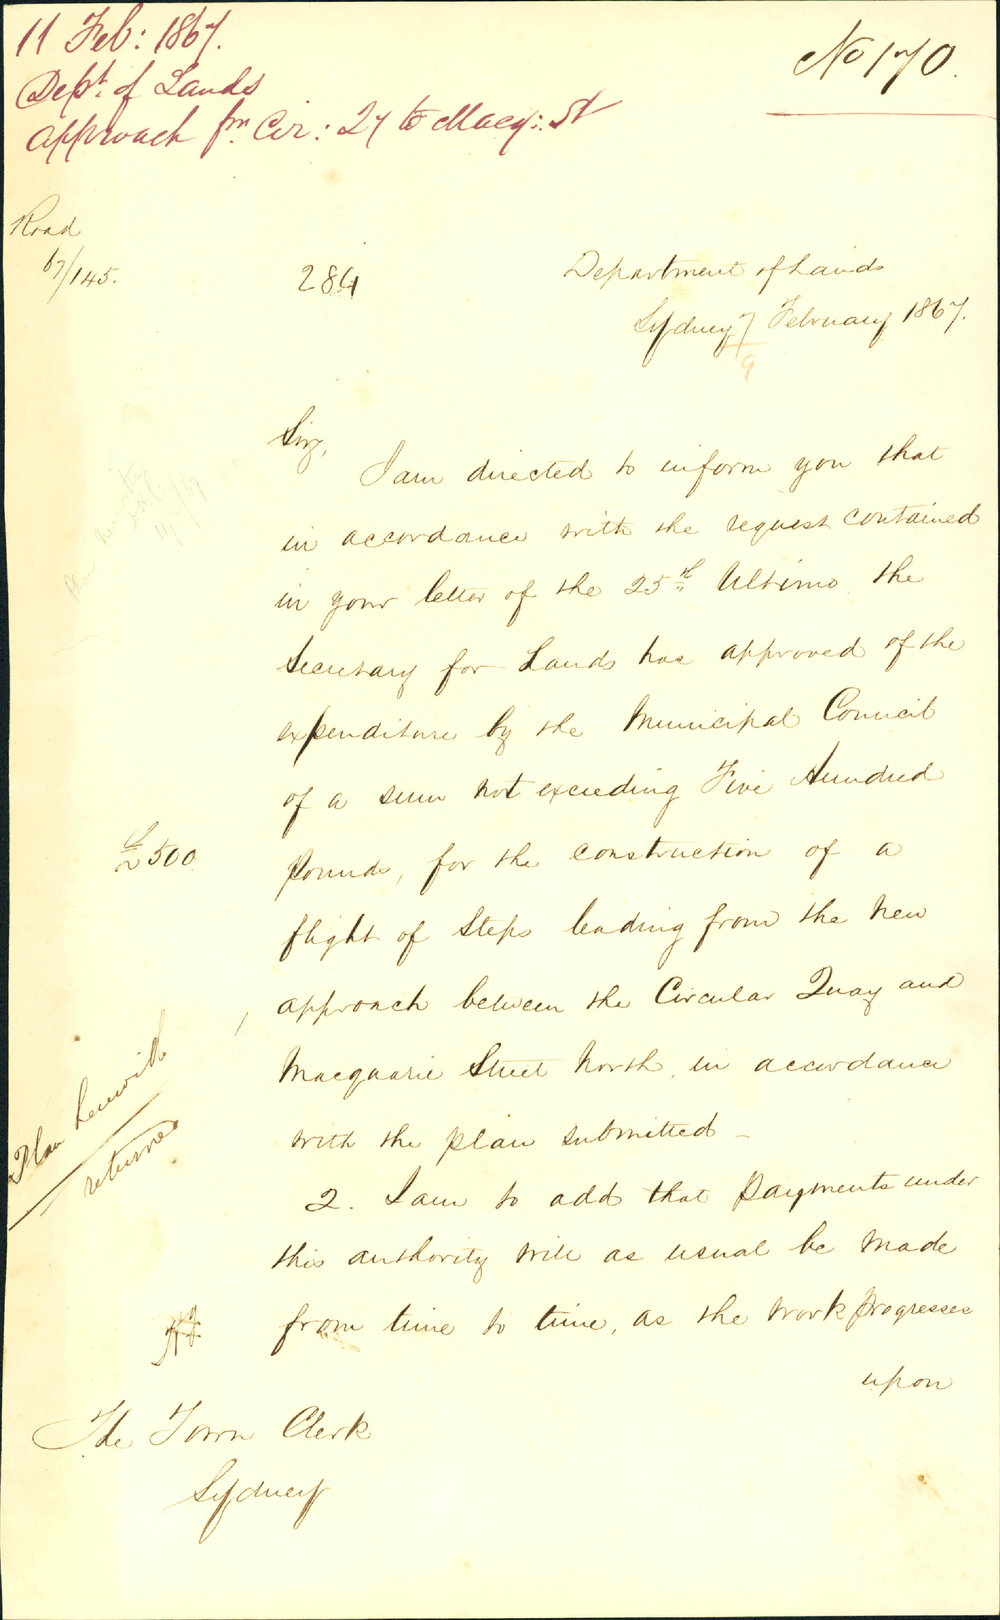 11 Feb: 1867.
Dept. of Lands
Approach fm. Cir: 2y to Macq: St
No 170.
Road
67/145.
284
Department of Lands
Sydney 7 February 1867.
9
Sir,
I am directed to inform you that
in accordance with the request contained
in your letter of the 25th Ultimo the
Secretary for Lands has approved of the
expenditure by the Municipal Council
of a sum not exceeding Five Hundred
£500
Pounds, for the construction of a
flight of Steps leading from the new
approach between the Circular Quay and
Macquarie Street North, in accordance
with the plan submitted –
Plan herewith
returned
2. I am to add that payments under
this authority will as usual be made
from time to time, as the work progresses
upon
The Town Clerk
Sydney